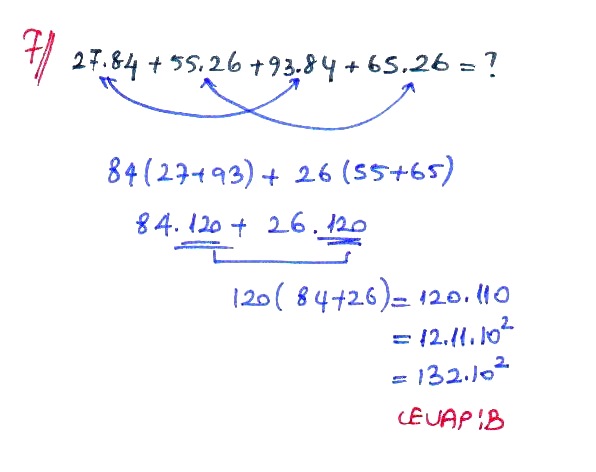 7// 27.84 + 55.26 + 93.84 + 65.26 = ?
84(27+93) + 26(55+65)
84.120 + 26.120
120(84+26) = 120.110
= 12.11.10²
= 132.10²
CEVAP:B